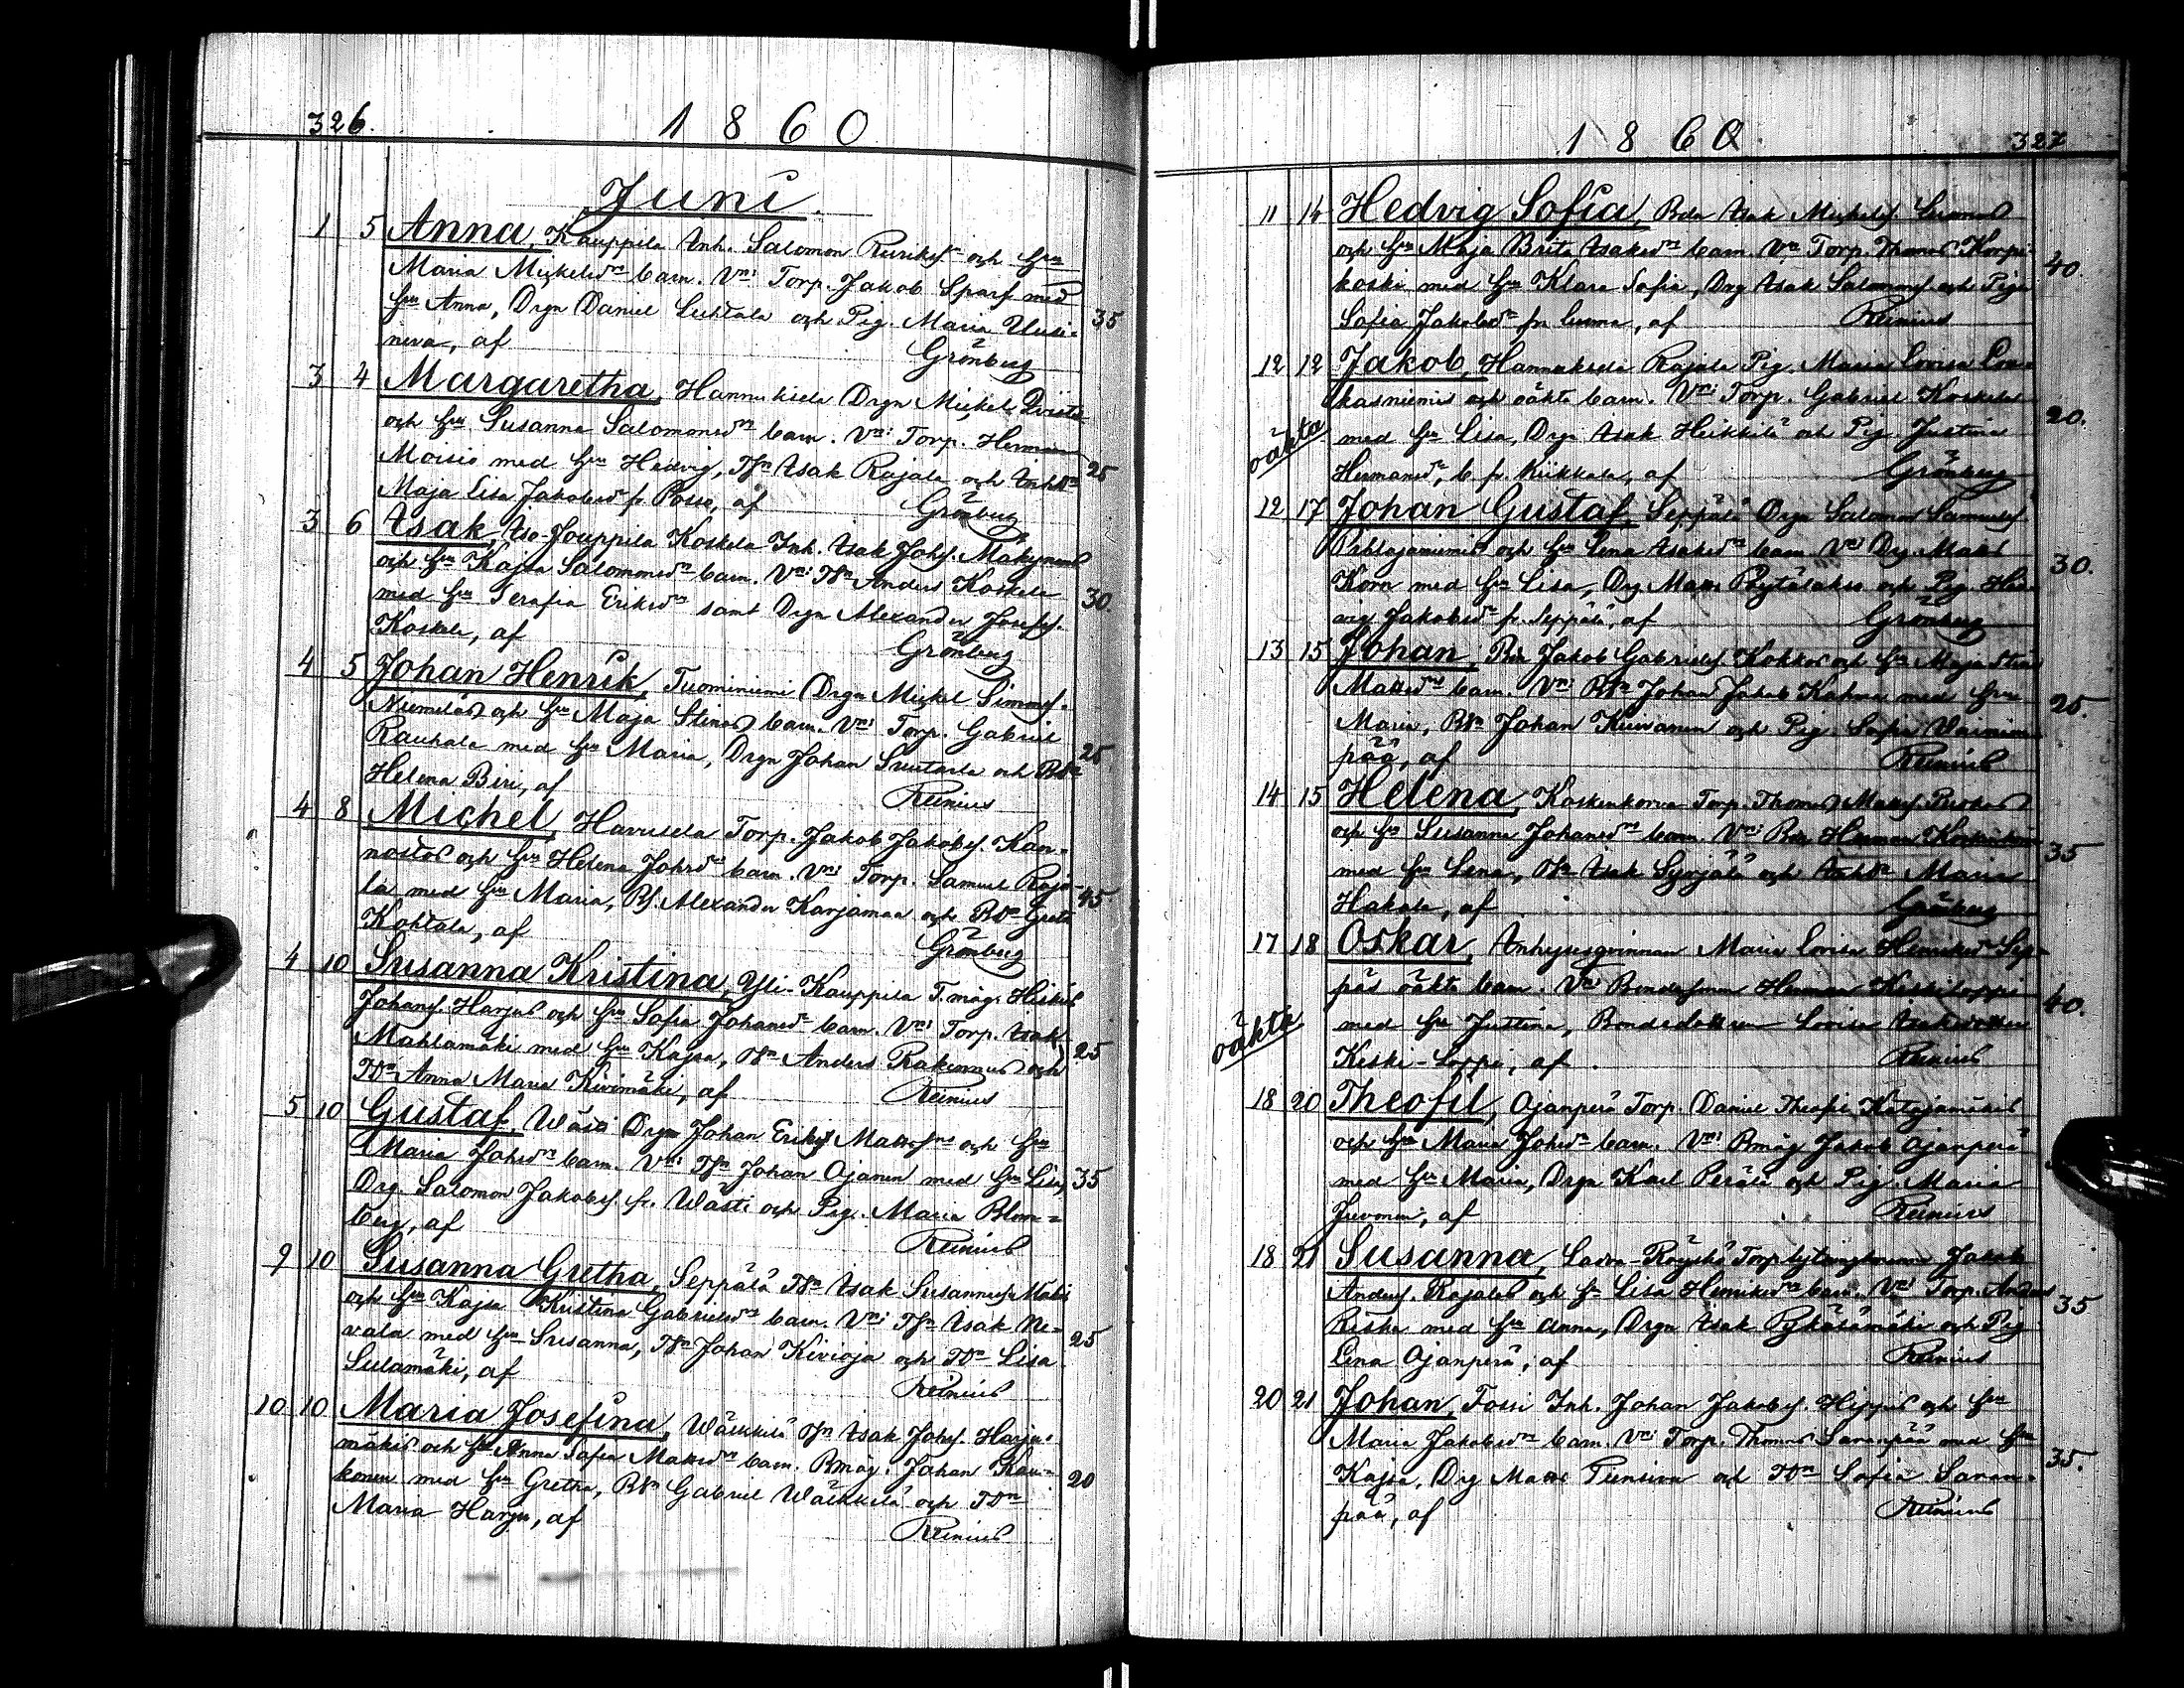 326.
1860.
Juni.
1 5 Anna, Kauppila Inh. Salomon Eriks. och hu
Maria Mickelsdr barn. Vn: Torp. Jakob Sparf med
hu Anna, Drgn Daniel Luhtala och Pig. Maria Uusi- 35
niva, af Grönberg
3 4 Margaretha, Hannuksela Drgn Mickel
och hu Susanna Salomonsdr barn. Vn: Torp. Herman
Moisio med hu Hedvig, Tsn Isak Rajala och Inhdr 25
Maja Lisa Jakobsd fr. Posse, af Grönberg
3 6 Isak, Iso-Jouppila Koskela Inh. Isak Johs. Mäkynens
och hu Kajsa Salomonsdr barn. Vn: Tsn Anders Koskela
med hu Serafia Eriksdr samt Drgn Alexander Josefs. 30.
Koskela, af Grönberg
4 5 Johan Henrik, Tuominiemi Drgn Mickel Simons.
Niemeläs och hu Maja Stinas barn. Vn: Torp. Gabriel
Rauhala med hu Maria, Drgn Johan Suutarla och Bdr 25
Helena Biri, af Reinius
4 8 Michel, Havusela Torp. Jakob Jakobs. Kan-
nostos och hu Helena Johsdr barn. Vn: Torp. Samuel Raja-
la med hu Maria, Alexander Karjamaa och Bdr Greta 45
Kohtala, af Grönberg
4 10 Susanna Kristina, Yli-Kauppila T.måg. Heikki
Johans. Harjus och hu Sofia Johansdr barn. Vn: Torp. Isak
Mahlamäki med hu Kajsa, Tsn Anders Rakennus och 25
Tdr Anna Maria Kivimäki, af Reinius
5 10 Gustaf, Wästi Drgn Johan Eriks. och hu
Maria Johsdr barn. Vn: Tsn Johan Ojanen med hu Lisa, 35
Drg. Salomon Jakobs. fr. Wästi och Pig. Maria Blom-
berg, af Reinius
9 10 Susanna Gretha, Seppälä Tsn Isak Mäkis
och hu Kajsa Kristina Gabrielsdr barn. Vn: Tsn Isak Ne-
vala med hu Susanna, Tsn Johan Kivioja och Tdr Lisa 25
Sulamäki, af Reinius
10 10 Maria Josefina, Wälkkilä Tsn Isak Johs. Harju-
mäkis och hu Anna Sofia Mattsdr barn. Bmåg. Johan Kau-
konen med hu Gretha, Bsn Gabriel Wälkkilä och Tdr 20
Maria Harju, af Reinius
1860. 327
11 14 Hedvig Sofia, Bdn Isak Mickels. Luomas
och hu Maja Brita Isaksdr barn. Vn: Torp. Thomas Korpi-
koski med hu Klara Sofia, Drg Isak Salomons. och Piga 40.
Sofia Jakobsdr fr. Luoma, af Reinius
12 12 Jakob, Hannuksela Rajala Pig. Maria Lovisa Lou-
kasniemis och oäkta barn. Vn: Torp. Gabriel Koskela
oäkta med hu Lisa, Drgn Isak Heikkilä och Pig. Justina 20.
Hermansdr, b. fr. Kiikkala, af Grönberg
12 17 Johan Gustaf, Seppälä Drgn Salomon Samuels.
och hu Lena Isaksdr barn. Vn: Drg. Matts
Korn med hu Lisa, Drg Matts Pöytälakso och Pig. Hed- 30.
vig Jakobsdr fr. Seppälä, af Grönberg
13 15 Johan, Bdn Jakob Gabriels. Kokkos och hu Maja Stina
Mattsdr barn. Vn: Bsn Johan Jakob Kahma med hu
Maria, Bsn Johan Kuivanen och Pig. Sofia Vainion- 25.
pää, af Reinius
14 15 Helena, Koskenkorva Torp. Thomas Matts.
och hu Susanna Johansdr barn. Vn: Bdn Herman Koskenkorva 35
med hu Lena, Tsn Isak Syrjälä och Inhdr Maria
Hakala, af Grönberg
17 18 Oskar, Inhysesqvinnan Maria Lovisa Henriksdr Sep-
päs oäkta barn. Vn: Bondesonen Herman Keskiloppi 40.
oäkta med hu Justina, Bondedottren Lovisa Isaksdotter
Keski-Loppi, af Reinius
18 20 Theofil, Ojanperä Torp. Daniel Theofil Katajamäkis
och hu Maria Johsdr barn. Vn: Bmåg Jakob Ojanperä
med hu Maria, Drgn Karl Perälä och Pig. Maria
Juvonen, af Reinius
18 21 Susanna, Jakob
Anders. Rajalas och hu Lisa Henriksdr barn. Vn: Torp. Anders
Reska med hu Anna, Drgn Isak Pykälämäki och Pig. 35
Lena Ojanperä, af Reinius
20 21 Johan, Fossi Inh. Johan Jakobs. Hippis och hu
Maria Jakobsdr barn. Vn: Torp. Thomas Saranpää med hu
Kajsa, Drg Matts och Tdr Sofia Saran- 35.
pää, af Reinius